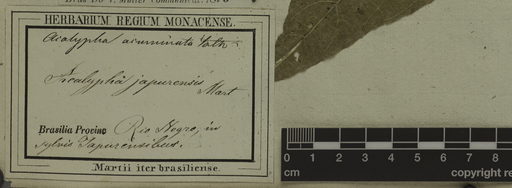 HERBARIUM REGIUM MONACENSE.
Acalypha acuminata
Acalypha japurensis
Mart
Brasilia Provinc Rio Negro, in
sylvis Japurensibus.
Martii iter brasiliense.
cm 0 1 2 3 4 5 6 7 8
copyright re